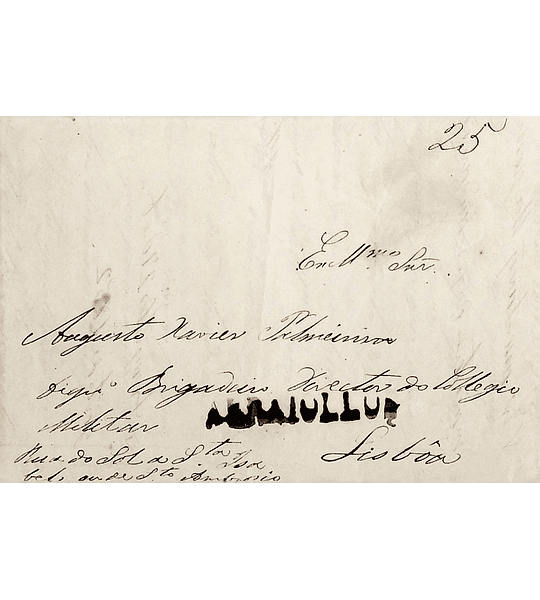 25
Exmmo. Snr.
Augusto Xavier Palmeirim
Brigadeiro Director do Collegio
Militar
ARRAIOLLOS
Lisbôa
Rua do Sol a Sta Isa
bel, ou de Sto Ambrosio